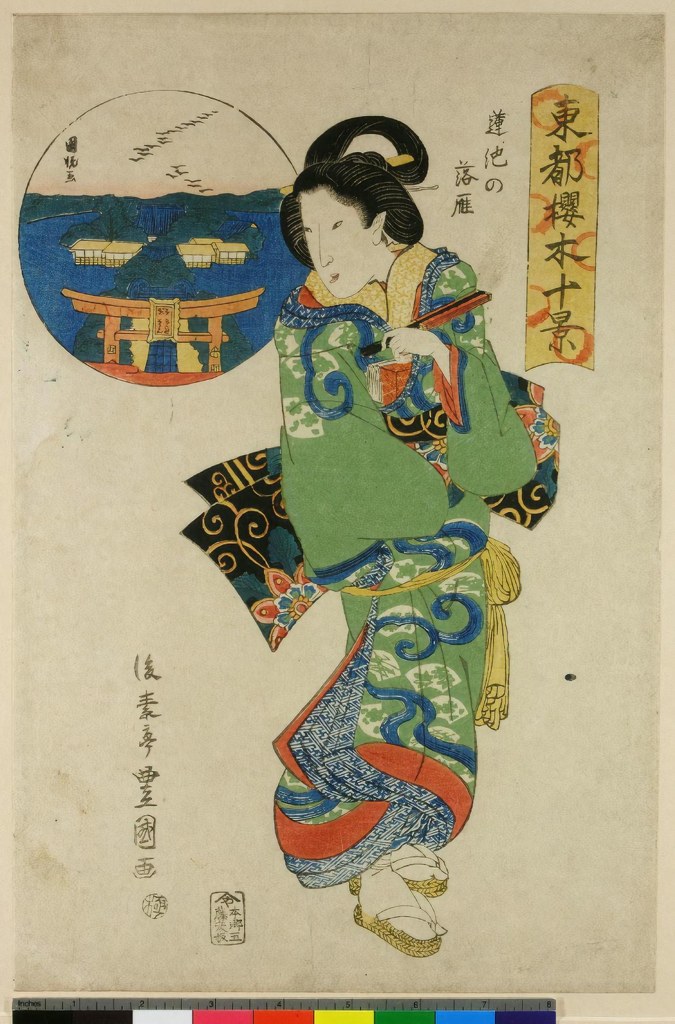 東都櫻木十景
蓮池の
落雁
國鵄画
後素亭豊國画
極
本郷五
藤次板
Inches 1 2 3 4 5 6 7 8